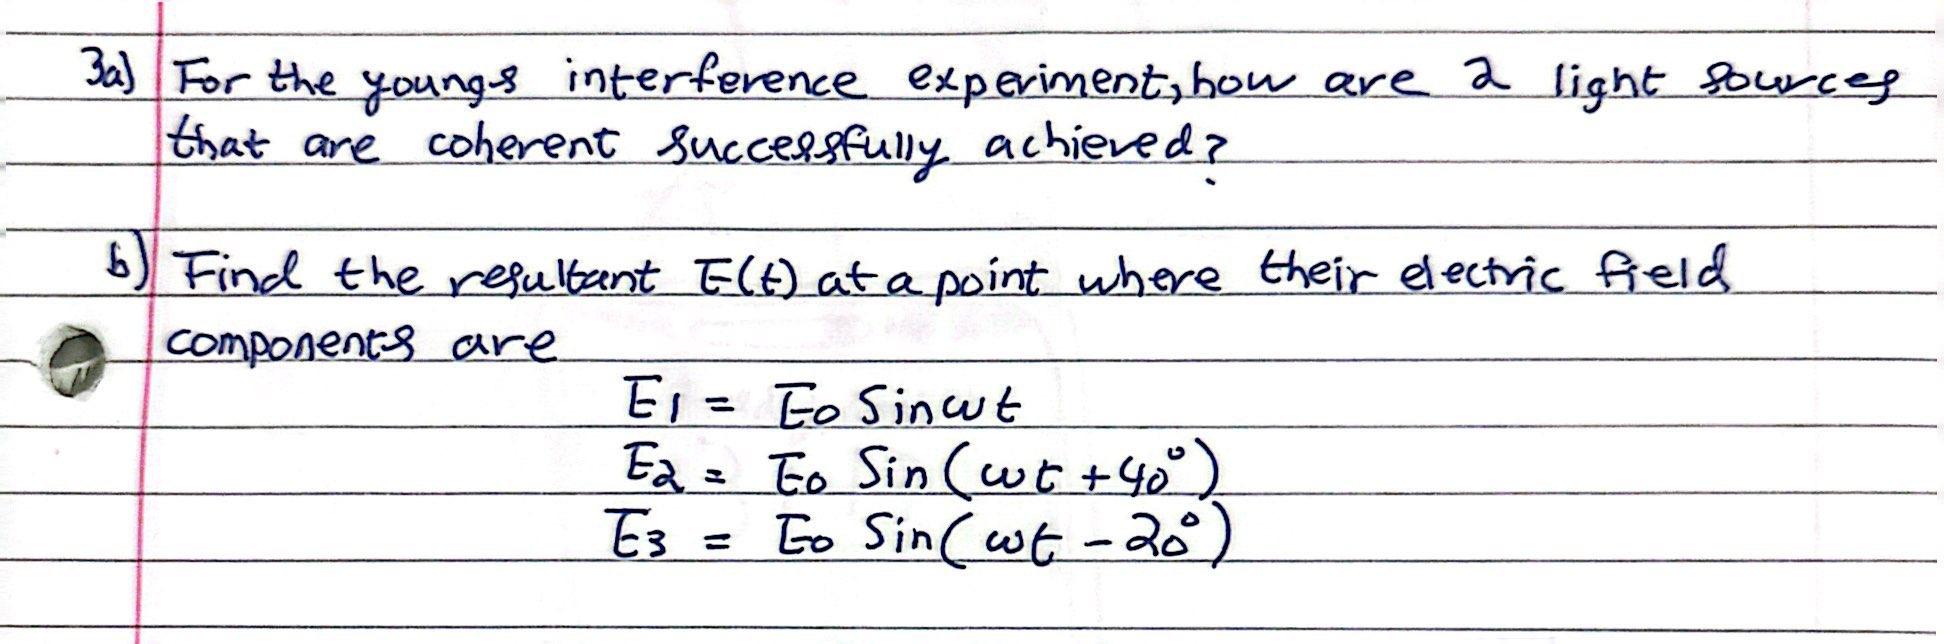 3a) For the youngs interference experiment, how are 2 light sources
that are coherent successfully achieved?
b) Find the resultant E(t) at a point where their electric field
components are
E1 = E0 Sin ωt
E2 = E0 Sin (ωt + 40°)
E3 = E0 Sin (ωt - 20°)